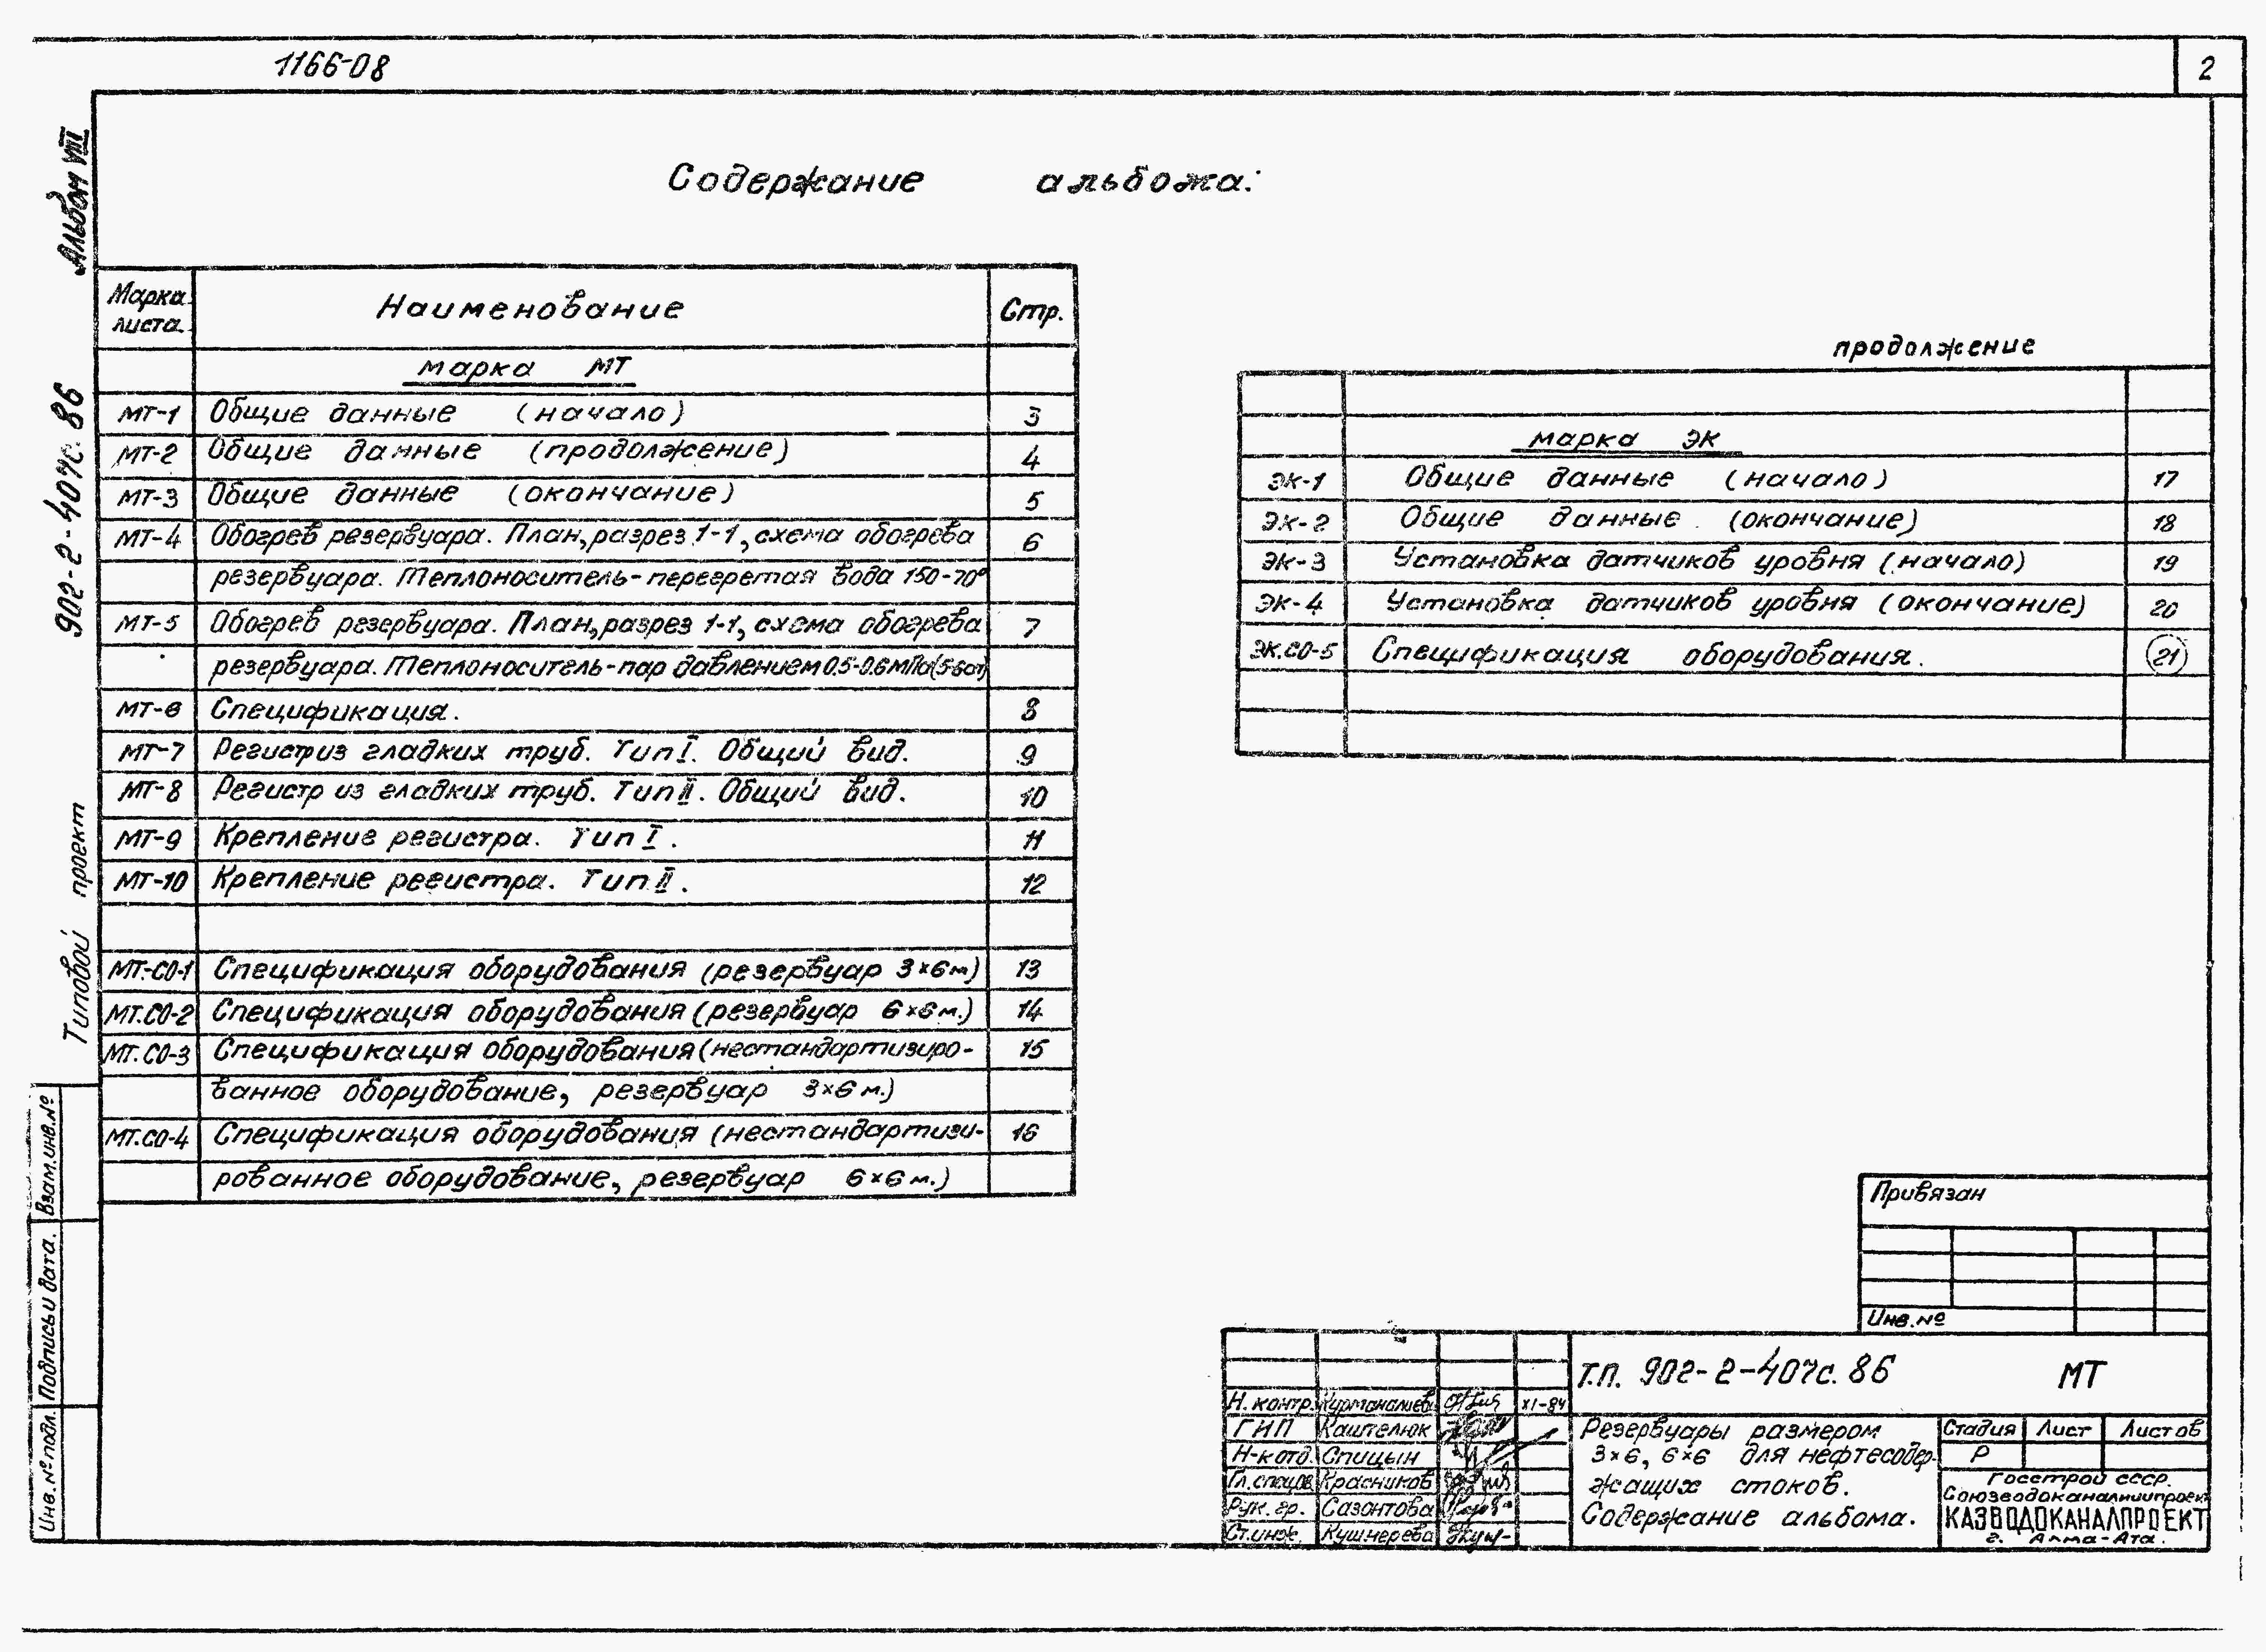 1166-08
2
Альбом VIII
902-2-407с.86
Типовой проект
Содержание альбома:
Марка листа
Наименование
Стр.
марка МТ
МТ-1 Общие данные (начало) 3
МТ-2 Общие данные (продолжение) 4
МТ-3 Общие данные (окончание) 5
МТ-4 Обогрев резервуара. План, разрез 1-1, схема обогрева 6
резервуара. Теплоноситель-перегретая вода 150-70°
МТ-5 Обогрев резервуара. План, разрез 1-1, схема обогрева 7
резервуара. Теплоноситель-пар давлением 0.5-0.6 МПа (5-6ат)
МТ-6 Спецификация. 8
МТ-7 Регистр из гладких труб. Тип I. Общий вид. 9
МТ-8 Регистр из гладких труб. Тип II. Общий вид. 10
МТ-9 Крепление регистра. Тип I. 11
МТ-10 Крепление регистра. Тип II. 12
МТ.-СО-1 Спецификация оборудования (резервуар 3×6м) 13
МТ.СО-2 Спецификация оборудования (резервуар 6×6м.) 14
МТ.СО-3 Спецификация оборудования (нестандартизиро- 15
ванное оборудование, резервуар 3×6м.)
МТ.СО-4 Спецификация оборудования (нестандартизи- 16
рованное оборудование, резервуар 6×6м.)
продолжение
марка ЭК
ЭК-1 Общие данные (начало) 17
ЭК-2 Общие данные (окончание) 18
ЭК-3 Установка датчиков уровня (начало) 19
ЭК-4 Установка датчиков уровня (окончание) 20
ЭК.СО-5 Спецификация оборудования. 21
Взам.инв.№
Подпись и дата.
Инв.№подл.
Привязан
Инв.№
Т.П. 902-2-407с.86 МТ
Н.контр. Курманалиева XI-84
ГИП Каштелюк
Н-к отд. Спицын
Гл.спецов Красников
Рук. гр. Сазонтова
Ст.инж. Кушнерева
Резервуары размером
3×6, 6×6 для нефтесодер-
жащих стоков.
Содержание альбома.
Стадия Лист Листов
Р
Госстрой СССР.
Союзводоканалниипроект
КАЗВОДОКАНАЛПРОЕКТ
г. Алма-Ата.